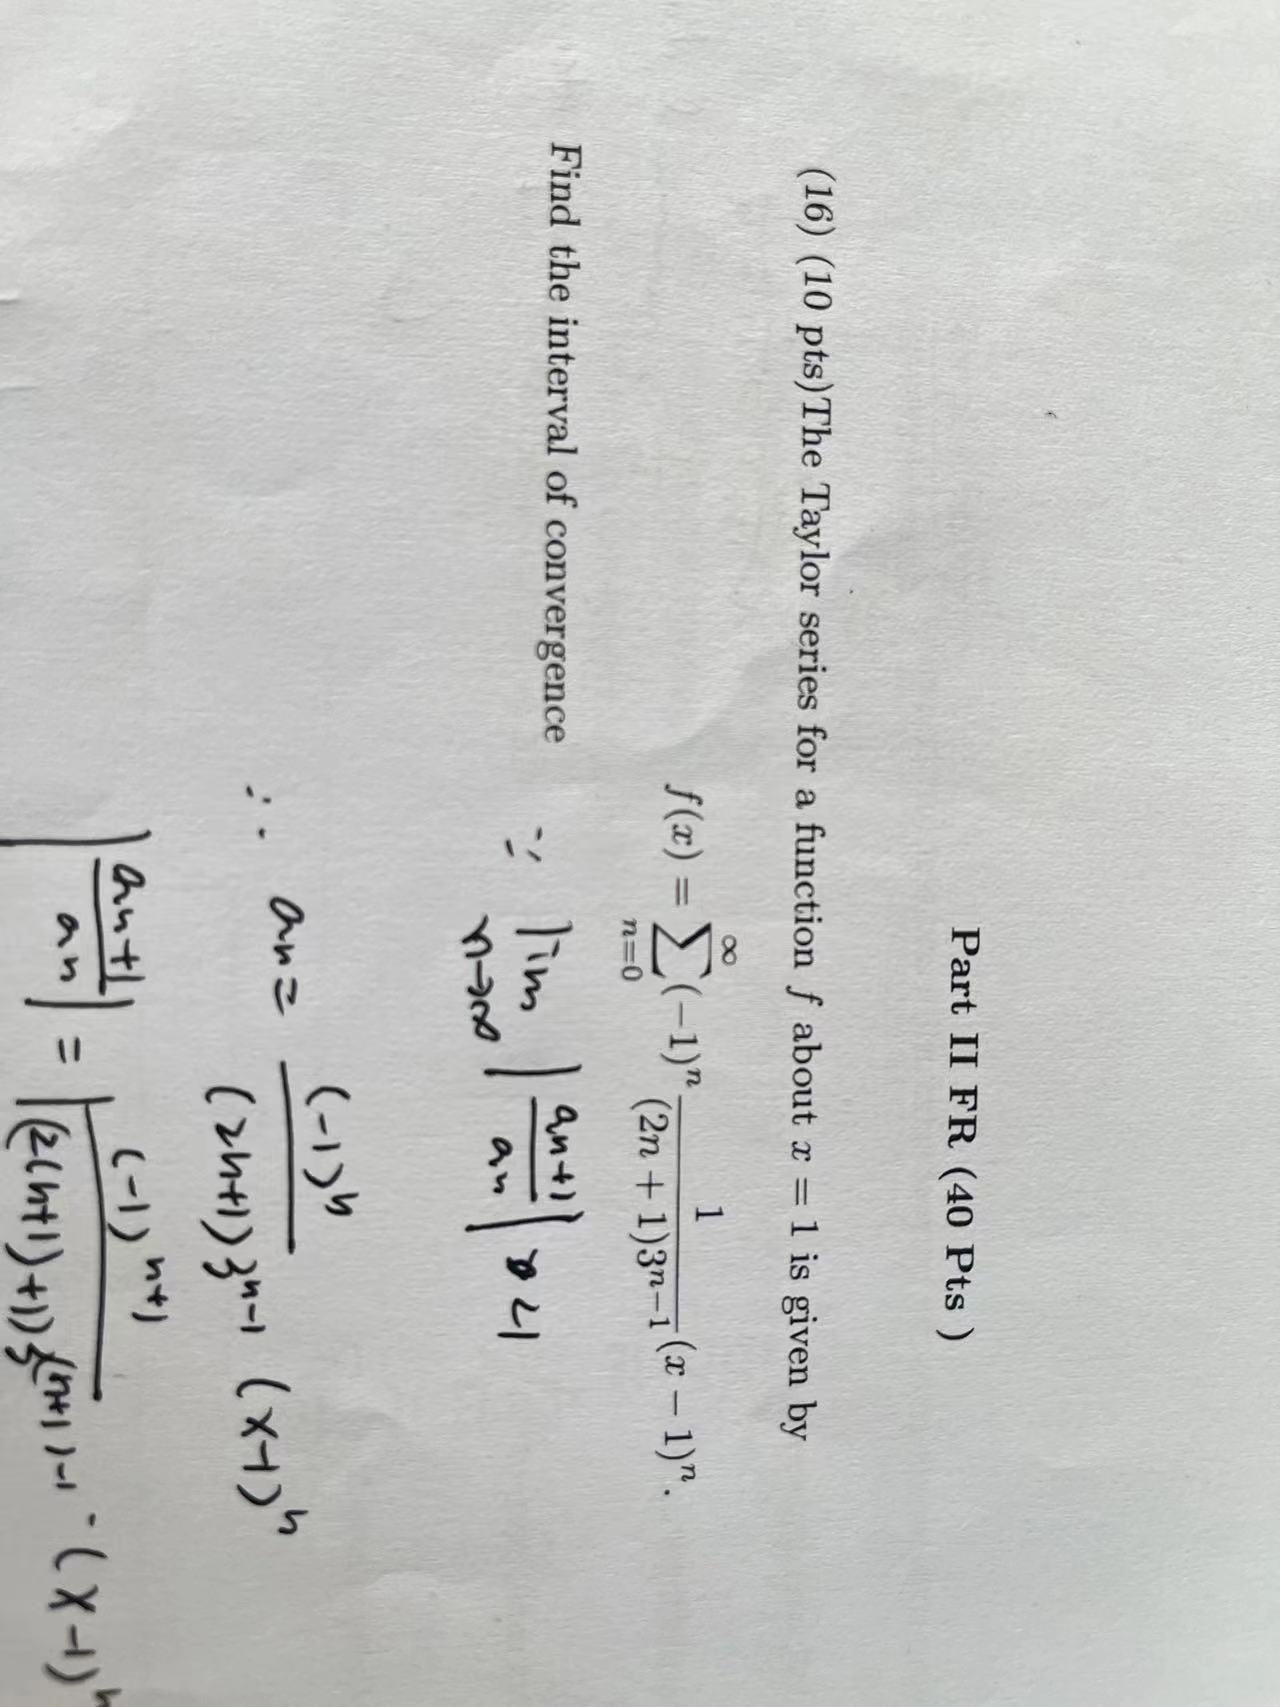 Part II FR (40 Pts )
(16) (10 pts)The Taylor series for a function f about x = 1 is given by
f(x) = ∑_{n=0}^{∞} (−1)^n 1/((2n + 1)3^{n−1}) (x − 1)^n.
Find the interval of convergence
∵ lim_{n→∞} |an+1/an| < 1
∴ an = (-1)^n/((2n+1)3^{n-1}) (x-1)^n
|an+1/an| = |(-1)^{n+1}/((2(n+1)+1)3^{(n+1)-1} · (x-1)^n